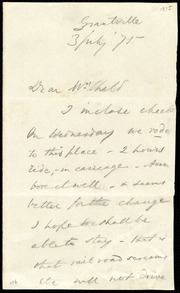 Grantville
3 July '75
Dear Mr Child
I inclose check
On Wednesday we rode
to this place - 2 hours
ride, in carriage -
well - & seems
better for the change
I hope we shall be
able to stay - that is
that rail road
will not drive